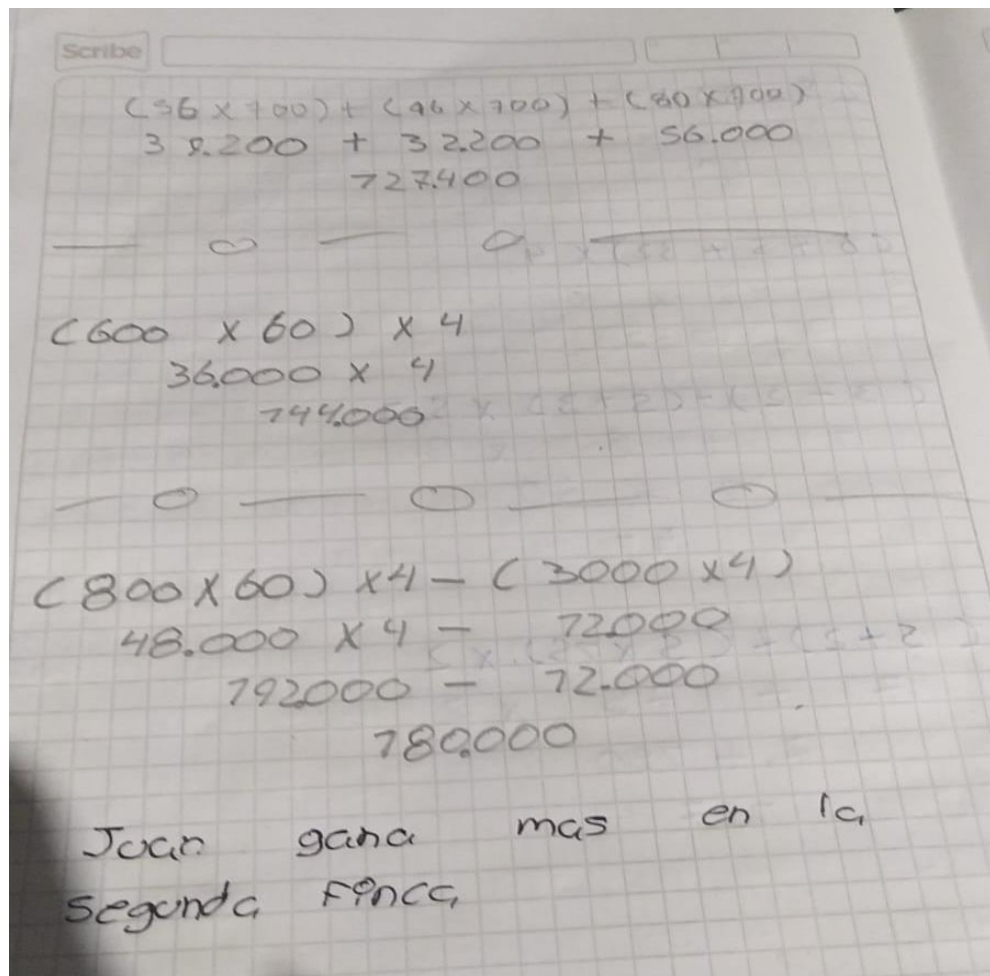 Scribe
(56 x 700) + (46 x 700) + (80 x 700)
39.200 + 32.200 + 56.000
127.400
(600 x 60) x 4
36.000 x 4
144.000
(800 x 60) x 4 - (3000 x 4)
48.000 x 4 - 12000
192000 - 12.000
180.000
Juan gana mas en la
segunda Finca